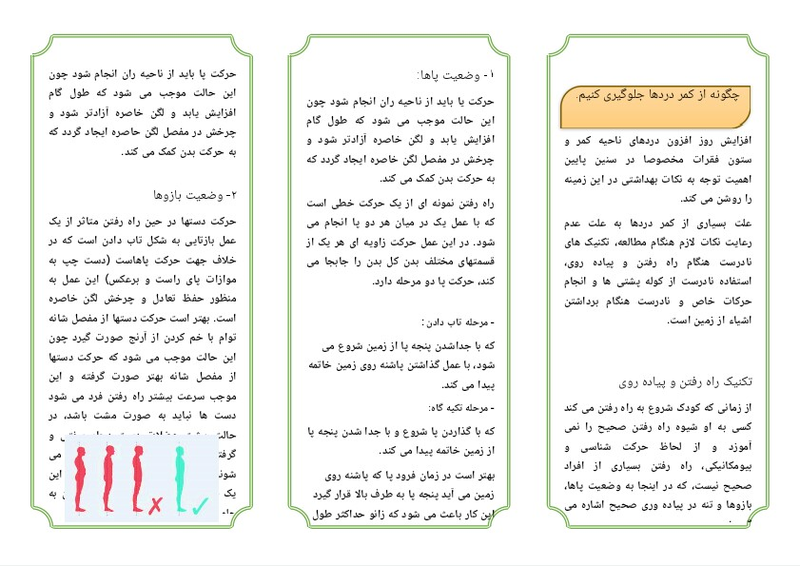 چگونه از کمر دردها جلوگیری کنیم.
افزایش روز افزون دردهای ناحیه کمر و
ستون فقرات مخصوصا در سنین پایین
اهمیت توجه به نکات بهداشتی در این زمینه
را روشن می کند.
علت بسیاری از کمر دردها به علت عدم
رعایت نکات لازم هنگام مطالعه، تکنیک های
نادرست هنگام راه رفتن و پیاده روی،
استفاده نادرست از کوله پشتی ها و انجام
حرکات خاص و نادرست هنگام برداشتن
اشیاء از زمین است.
تکنیک راه رفتن و پیاده روی
از زمانی که کودک شروع به راه رفتن می کند
کسی به او شیوه راه رفتن صحیح را نمی
آموزد و از لحاظ حرکت شناسی و
بیومکانیکی، راه رفتن بسیاری از افراد
صحیح نیست، که در اینجا به وضعیت پاها،
بازوها و تنه در پیاده وری صحیح اشاره می
۱- وضعیت پاها:
حرکت پا باید از ناحیه ران انجام شود چون
این حالت موجب می شود که طول گام
افزایش یابد و لگن خاصره آزادتر شود و
چرخش در مفصل لگن خاصره ایجاد گردد که
به حرکت بدن کمک می کند.
راه رفتن نمونه ای از یک حرکت خطی است
که با عمل یک در میان هر دو پا انجام می
شود. در این عمل حرکت زاویه ای هر یک از
قسمتهای مختلف بدن کل بدن را جابجا می
کند، حرکت پا دو مرحله دارد.
- مرحله تاب دادن :
که با جداشدن پنجه پا از زمین شروع می
شود، با عمل گذاشتن پاشنه روی زمین خاتمه
پیدا می کند.
- مرحله تکیه گاه:
که با گذاردن پا شروع و با جدا شدن پنجه پا
از زمین خاتمه پیدا می کند.
بهتر است در زمان فرود پا که پاشنه روی
زمین می آید پنجه پا به طرف بالا قرار گیرد
این کار باعث می شود که زانو حداکثر طول
حرکت پا باید از ناحیه ران انجام شود چون
این حالت موجب می شود که طول گام
افزایش یابد و لگن خاصره آزادتر شود و
چرخش در مفصل لگن خاصره ایجاد گردد که
به حرکت بدن کمک می کند.
۲- وضعیت بازوها
حرکت دستها در حین راه رفتن متاثر از یک
عمل بازتابی به شکل تاب دادن است که در
خلاف جهت حرکت پاهاست (دست چپ به
موازات پای راست و برعکس) این عمل به
منظور حفظ تعادل و چرخش لگن خاصره
است. بهتر است حرکت دستها از مفصل شانه
توام با خم کردن از آرنج صورت گیرد چون
این حالت موجب می شود که حرکت دستها
از مفصل شانه بهتر صورت گرفته و این
موجب سرعت بیشتر راه رفتن فرد می شود
دست ها نباید به صورت مشت باشد، در
و
می
این
یک به